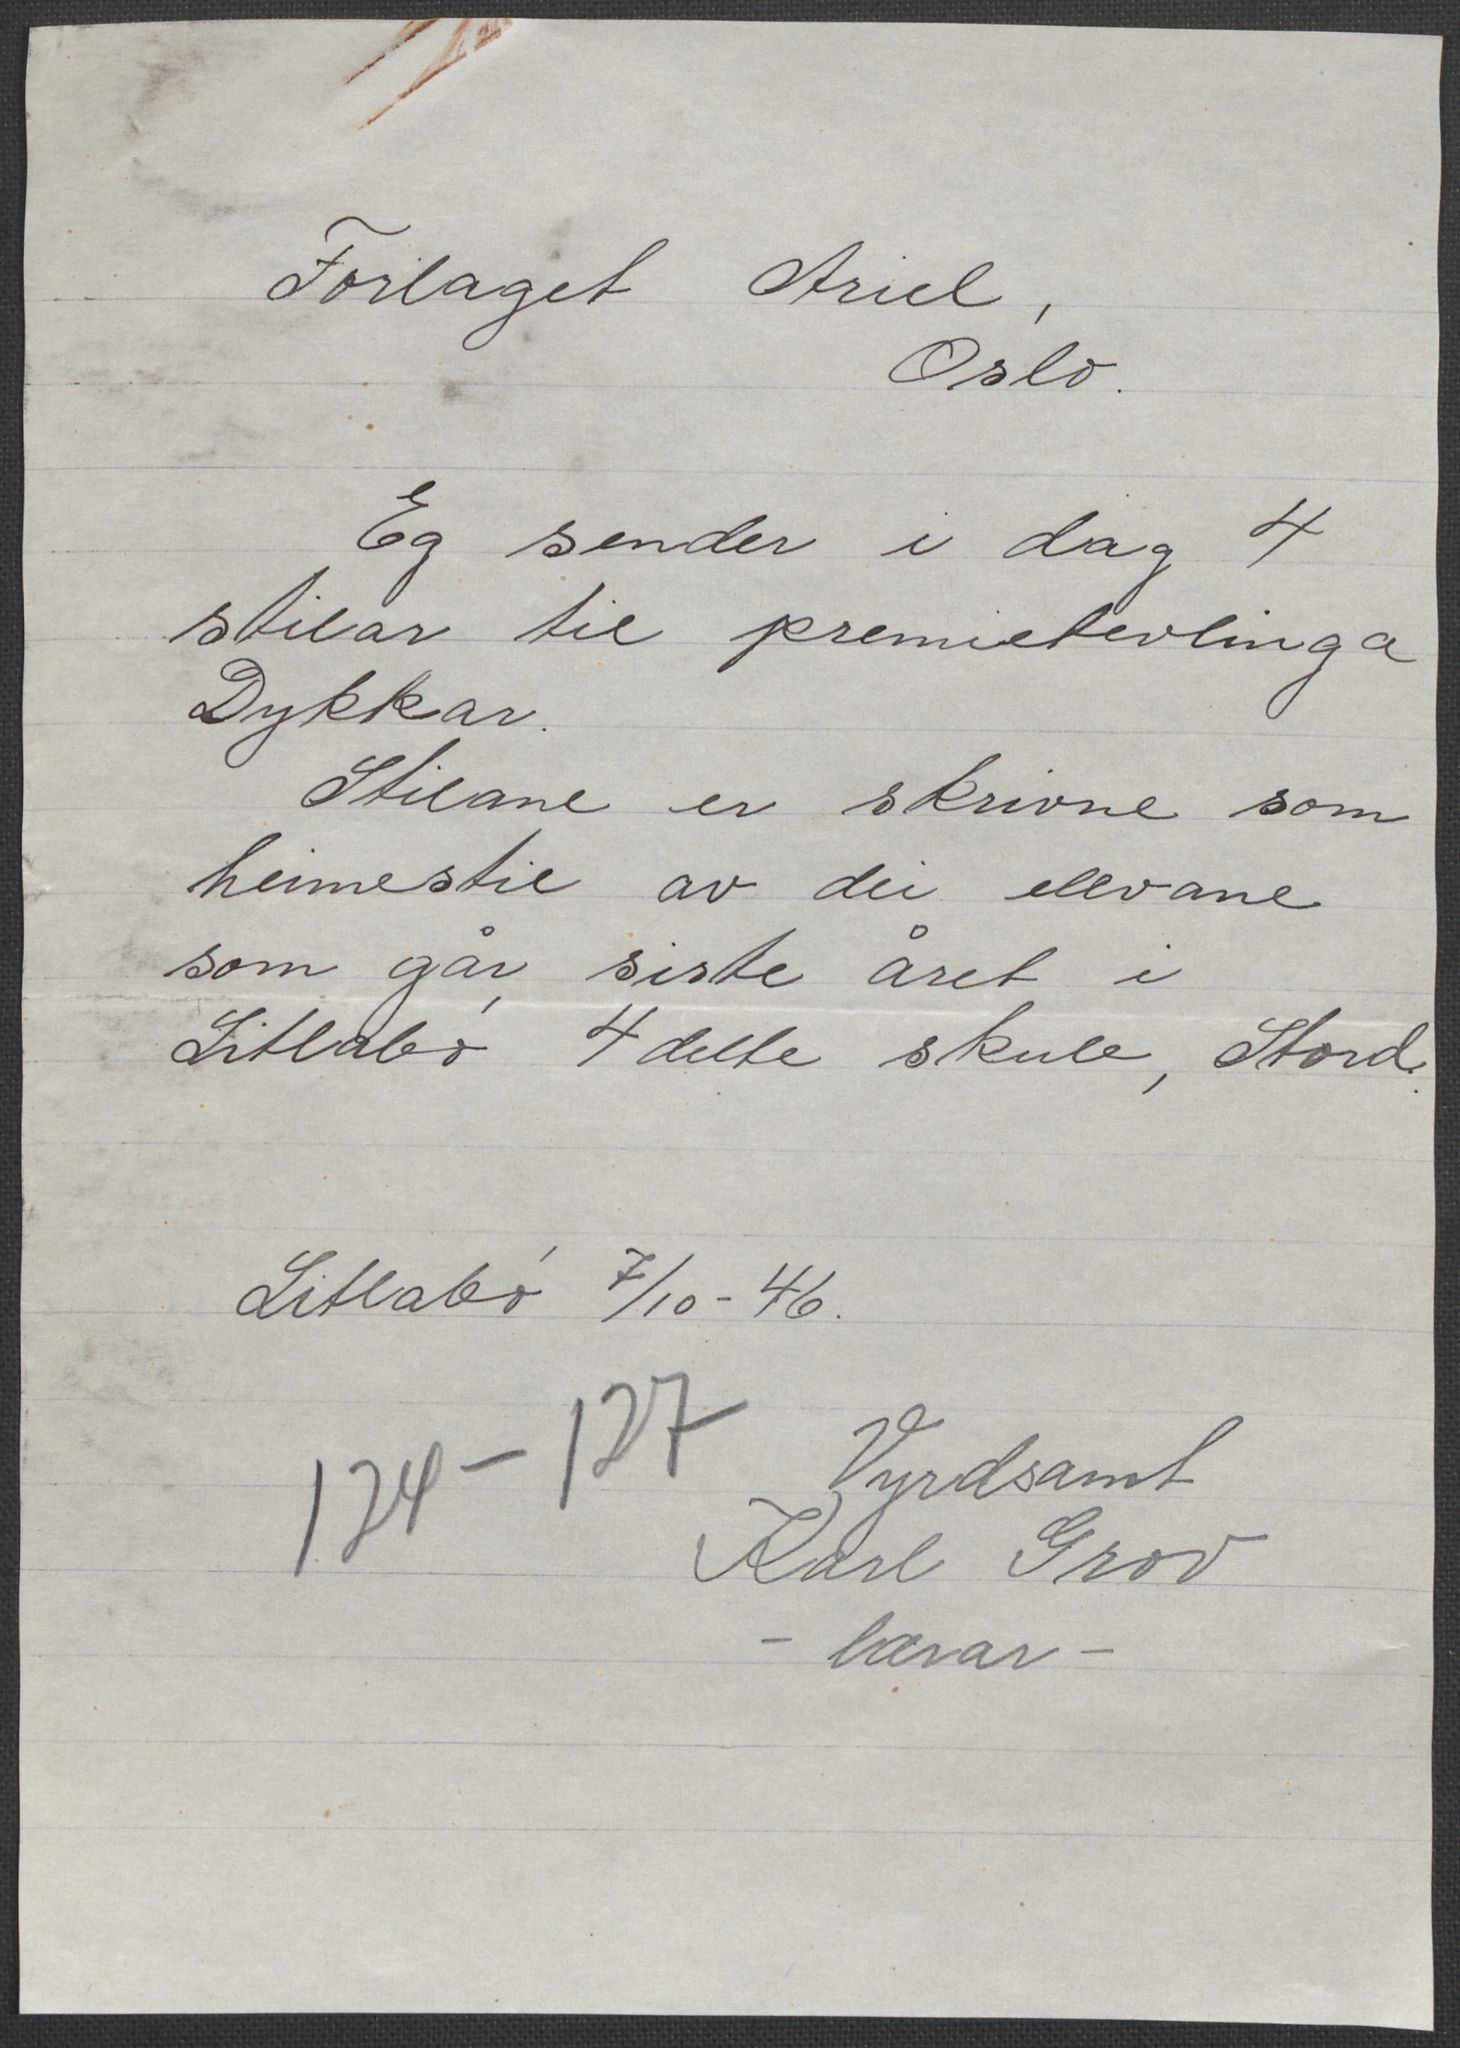 Forlaget Ariel,
Oslo.
Eg sender i dag 4
stilar til premietevlinga
Dykkar.
Stilane er skrivne som
heimestil av dei elevane
som går siste året i
Litlabó 4 delte skule, Stord.
Litlabó 7/10-46.
124-127
Vyrdsamt
Karl Grov
- lærar -